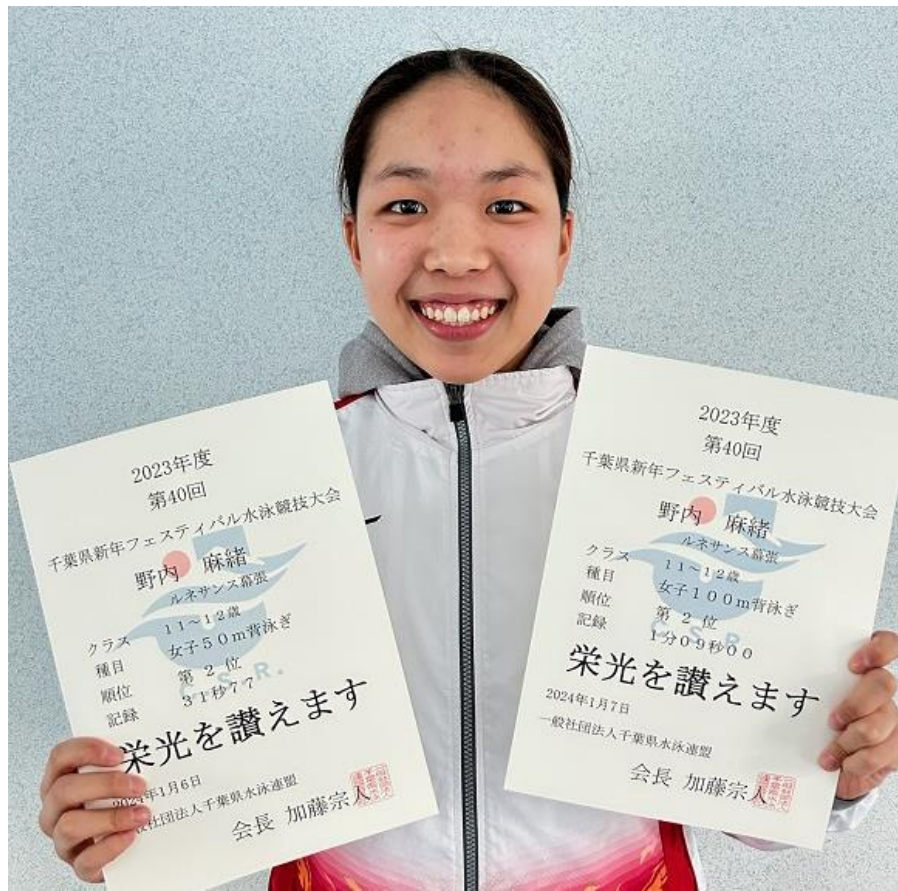 2023年度
第40回
千葉県新年フェスティバル水泳競技大会
野内 麻緒
ルネサンス幕張
クラス 11～12歳
種目 女子50m背泳ぎ
順位 第2位
記録 31秒77
C.S.R.
栄光を讃えます
2024年1月6日
一般社団法人千葉県水泳連盟
会長 加藤宗人
2023年度
第40回
千葉県新年フェスティバル水泳競技大会
野内 麻緒
ルネサンス幕張
クラス 11～12歳
種目 女子100m背泳ぎ
順位 第2位
記録 1分09秒00
C.S.R.
栄光を讃えます
2024年1月7日
一般社団法人千葉県水泳連盟
会長 加藤宗人